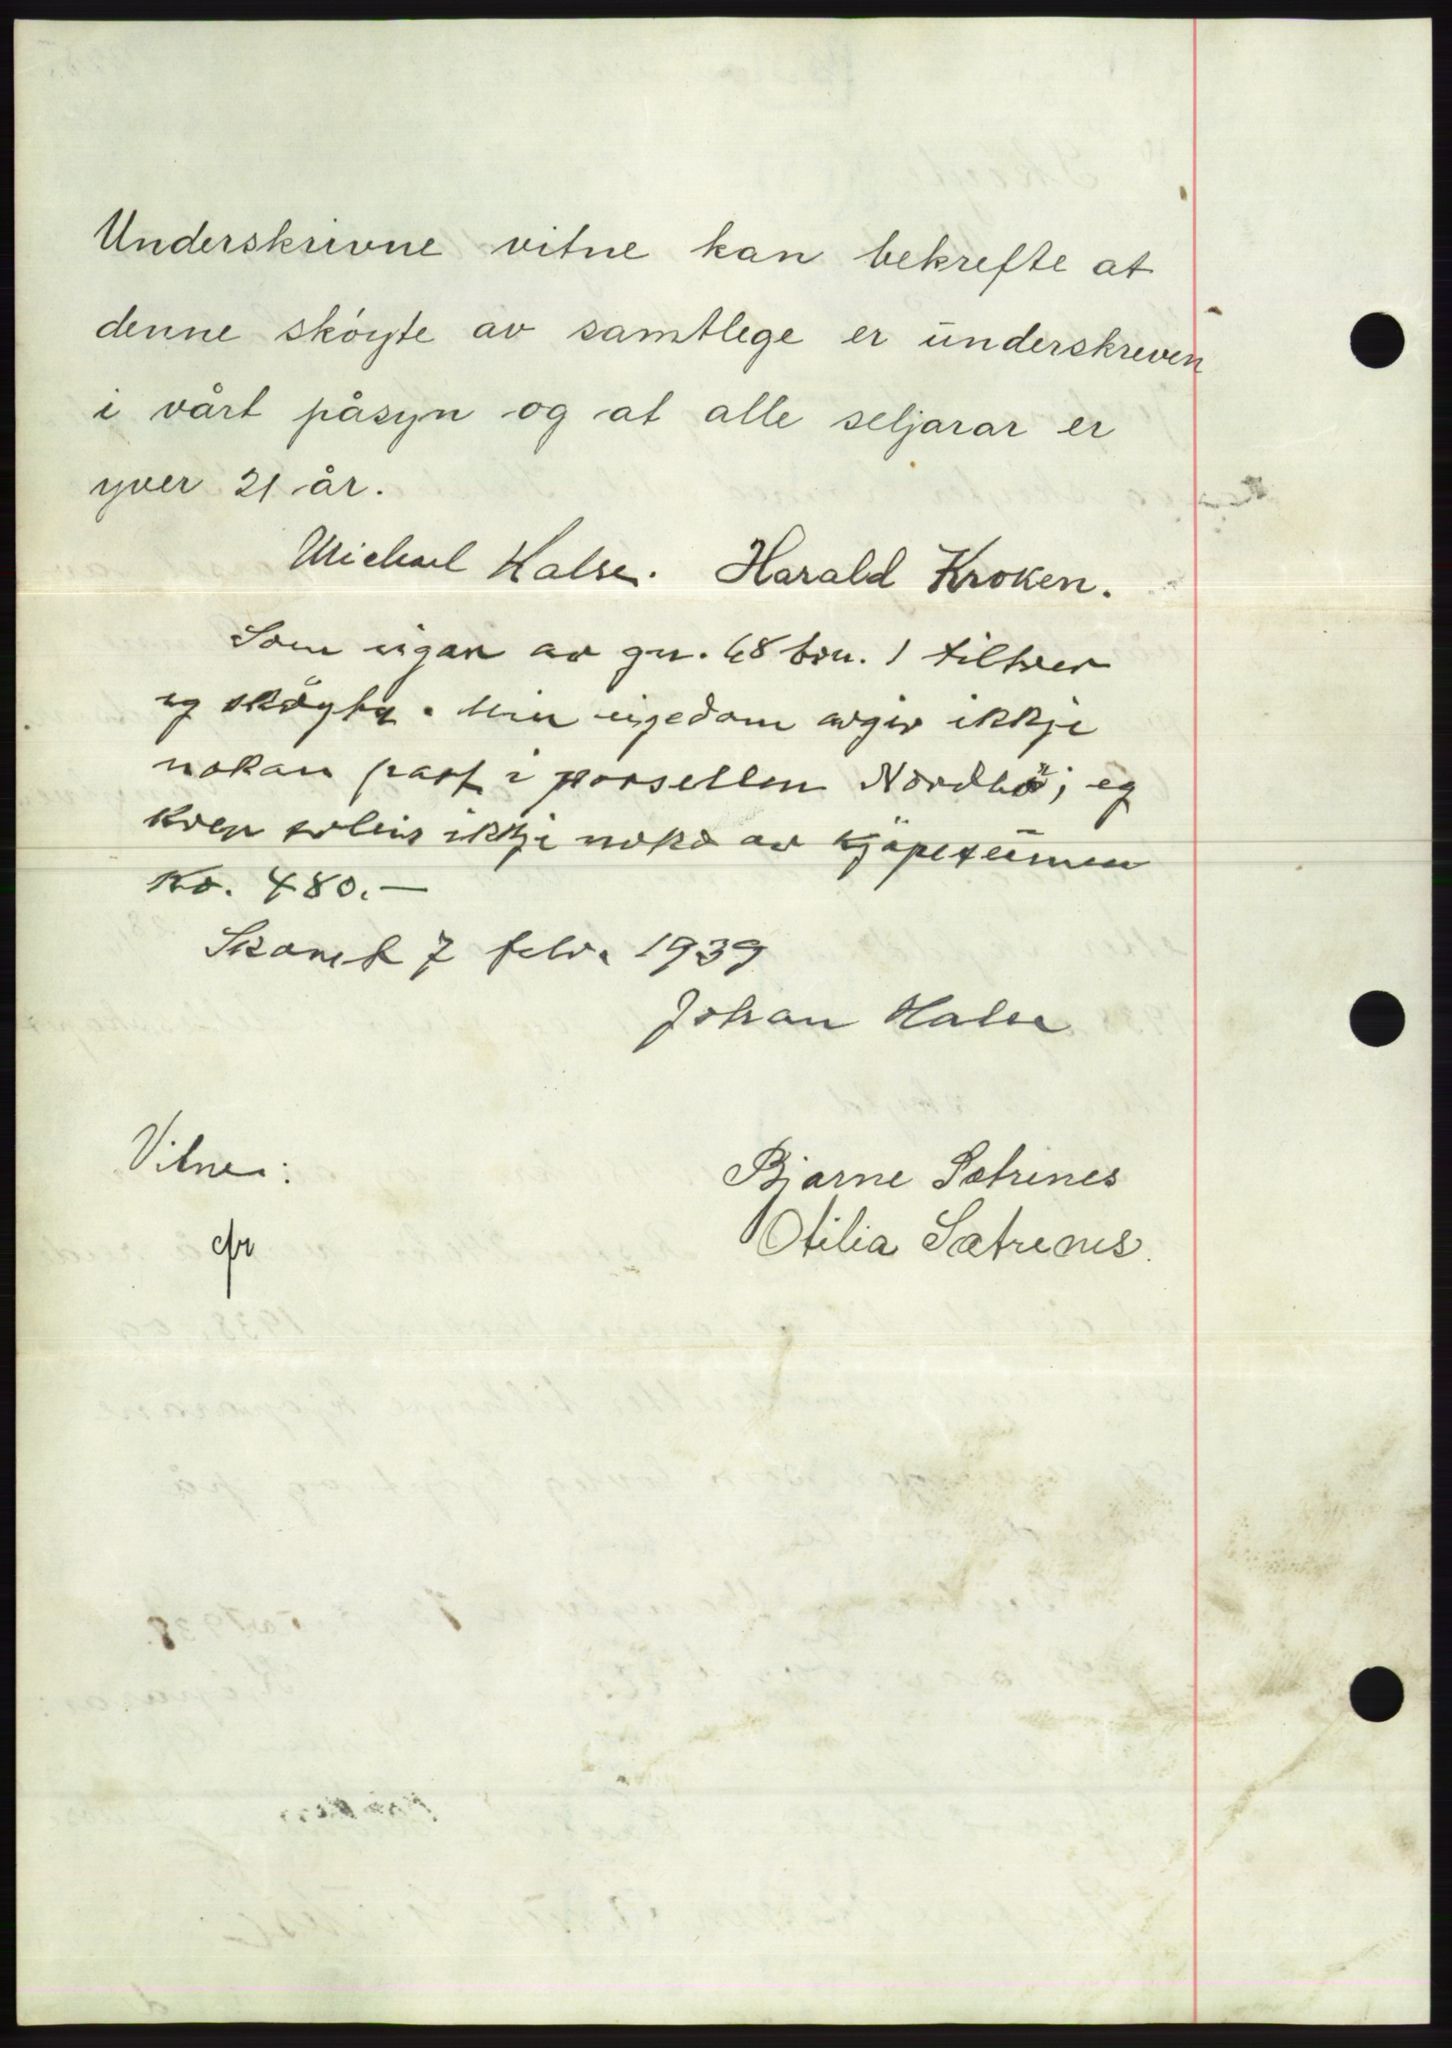 Underskrivne vitne kan bekrefte at
denne skóyte av samtlege er underskreven
i vårt påsyn og at alle seljarar er
yver 21 år.
Michael Halse. Harald Kroken.
Som eigar av gn. 68 bn. 1 tiltrer
eg sköyta. Min eigedom avgir ikkje
nokon part i parsellen Nordhö; eg
krev soleis ikkje noko av kjöpesumen
Kr. 480.—
7 febr. 1939
Johan Halse
Vitne:
Bjarne Sætrenes
cfr
Otilia Sætrenes.